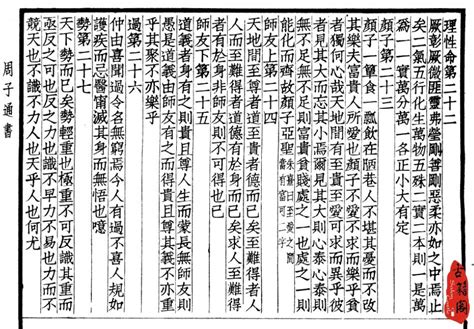 理性命第二十二
厥彰厥微匪靈弗瑩剛善剛惡柔亦如之中焉止
矣二氣五行化生萬物五殊二實二本則一是萬
為一一實萬分萬一各正小大有定
顏子第二十三
顏子一簞食一瓢飲在陋巷人不堪其憂而不改
其樂夫富貴人所愛也顏子不愛不求而樂乎貧
者獨何心哉天地間有至貴至愛可求而異乎彼
者見其大而忘其小焉爾見其大則心泰心泰則
無不足無不足則富貴貧賤處之一也處之一則
能化而齊故顏子亞聖朱熹曰至愛之間當有富可二字
師友上第二十四
天地間至尊者道至貴者德而已矣至難得者人
人而至難得者道德有於身而已矣求人至難得
者有於身非師友則不可得也已
師友下第二十五
道義者身有之則貴且尊人生而蒙長無師友則
愚是道義由師友有之而得貴且尊其義不亦重
乎其聚不亦樂乎
過第二十六
仲由喜聞過令名無窮焉今人有過不喜人規如
護疾而忌醫寧滅其身而無悟也噫
勢第二十七
天下勢而已矣勢輕重也極重不可反識其重而
亟反之可也反之力也識不早力不易也力而不
競天也不識不力人也天乎人也何尤
周子通書